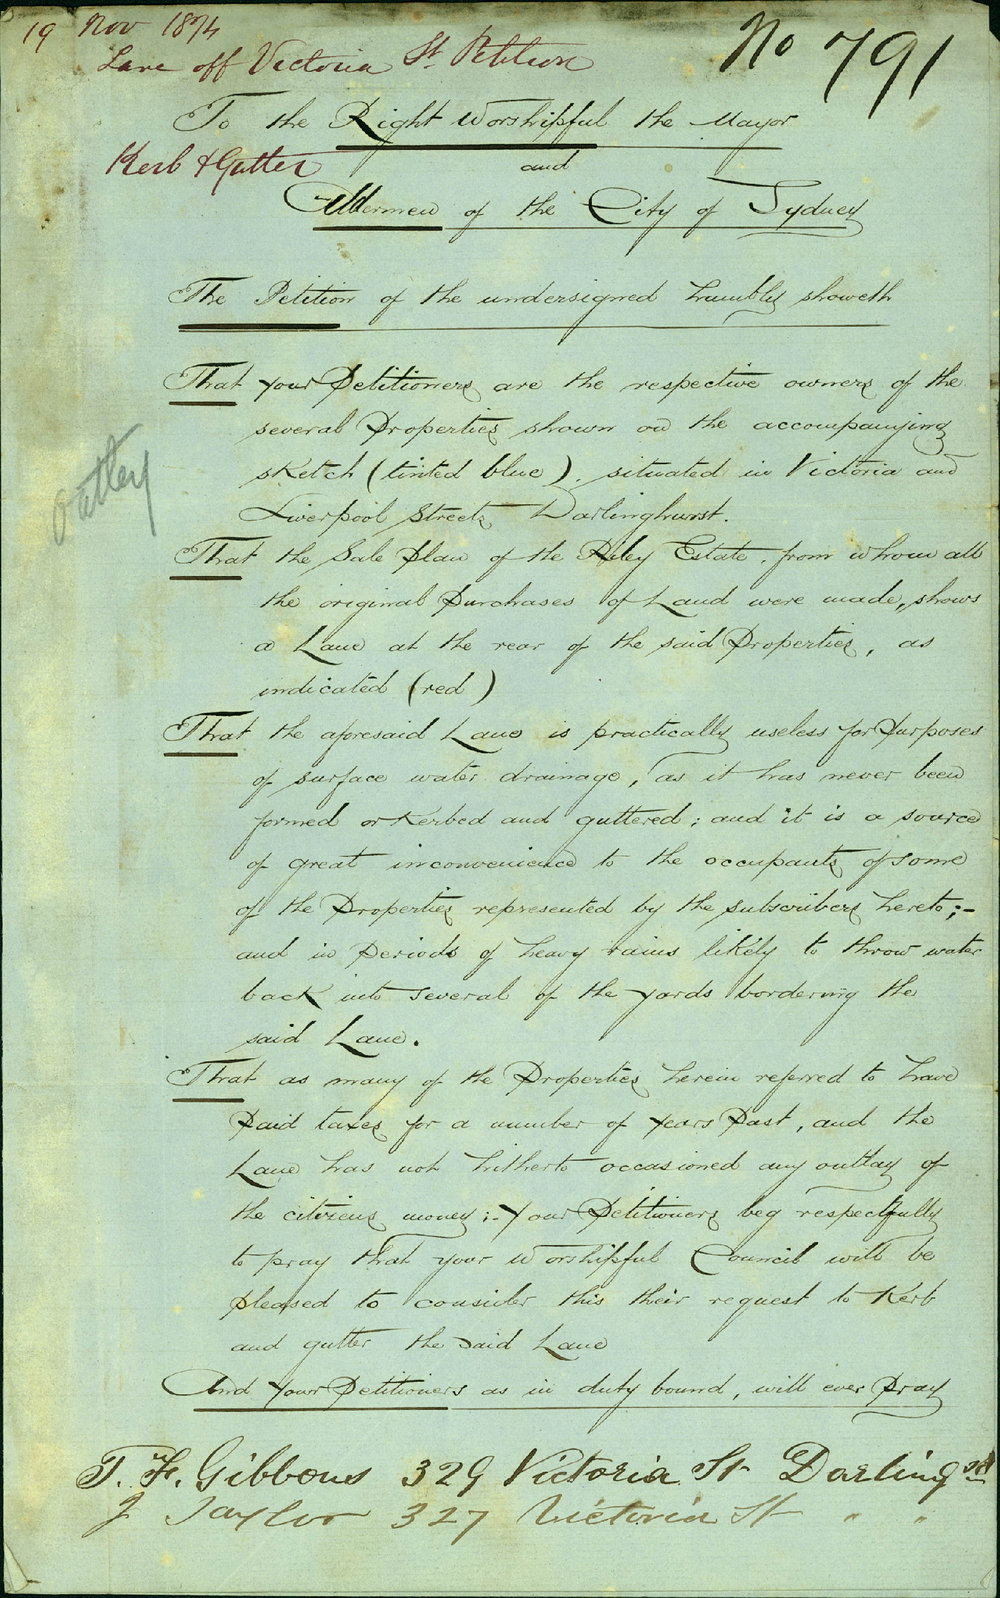 19 Nov 1874
Lane off Victoria St Petition
No 791
To the Right Worshipful the Mayor
Kerb & Gutter
and
Aldermen of the City of Sydney
The Petition of the undersigned humbly showeth
That your Petitioners are the respective owners of the
several Properties shown on the accompanying
sketch (tinted blue), situated in Victoria and
Liverpool Streets Darlinghurst.
Oatley
That the Sale Plan of the Riley Estate, from whom all
the original Purchases of Land were made, shows
a Lane at the rear of the said Properties, as
indicated (red)
That the aforesaid Lane is practically useless for Purposes
of surface water drainage, as it has never been
formed or Kerbed and guttered; and it is a source
of great inconvenience to the occupants of some
of the Properties represented by the subscribers hereto;-
and in Periods of heavy rains likely to throw water
back into several of the yards bordering the
said Lane.
That as many of the Properties herein referred to have
Paid taxes for a number of years Past, and the
Lane has not hitherto occasioned any outlay of
the citizens money;- Your Petitioners beg respectfully
to pray that your Worshipful Council will be
pleased to consider this their request to Kerb
and gutter the said Lane
And your Petitioners as in duty bound, will ever Pray
T. F. Gibbons 329 Victoria St Darling
J Taylor 327 Victoria St " "